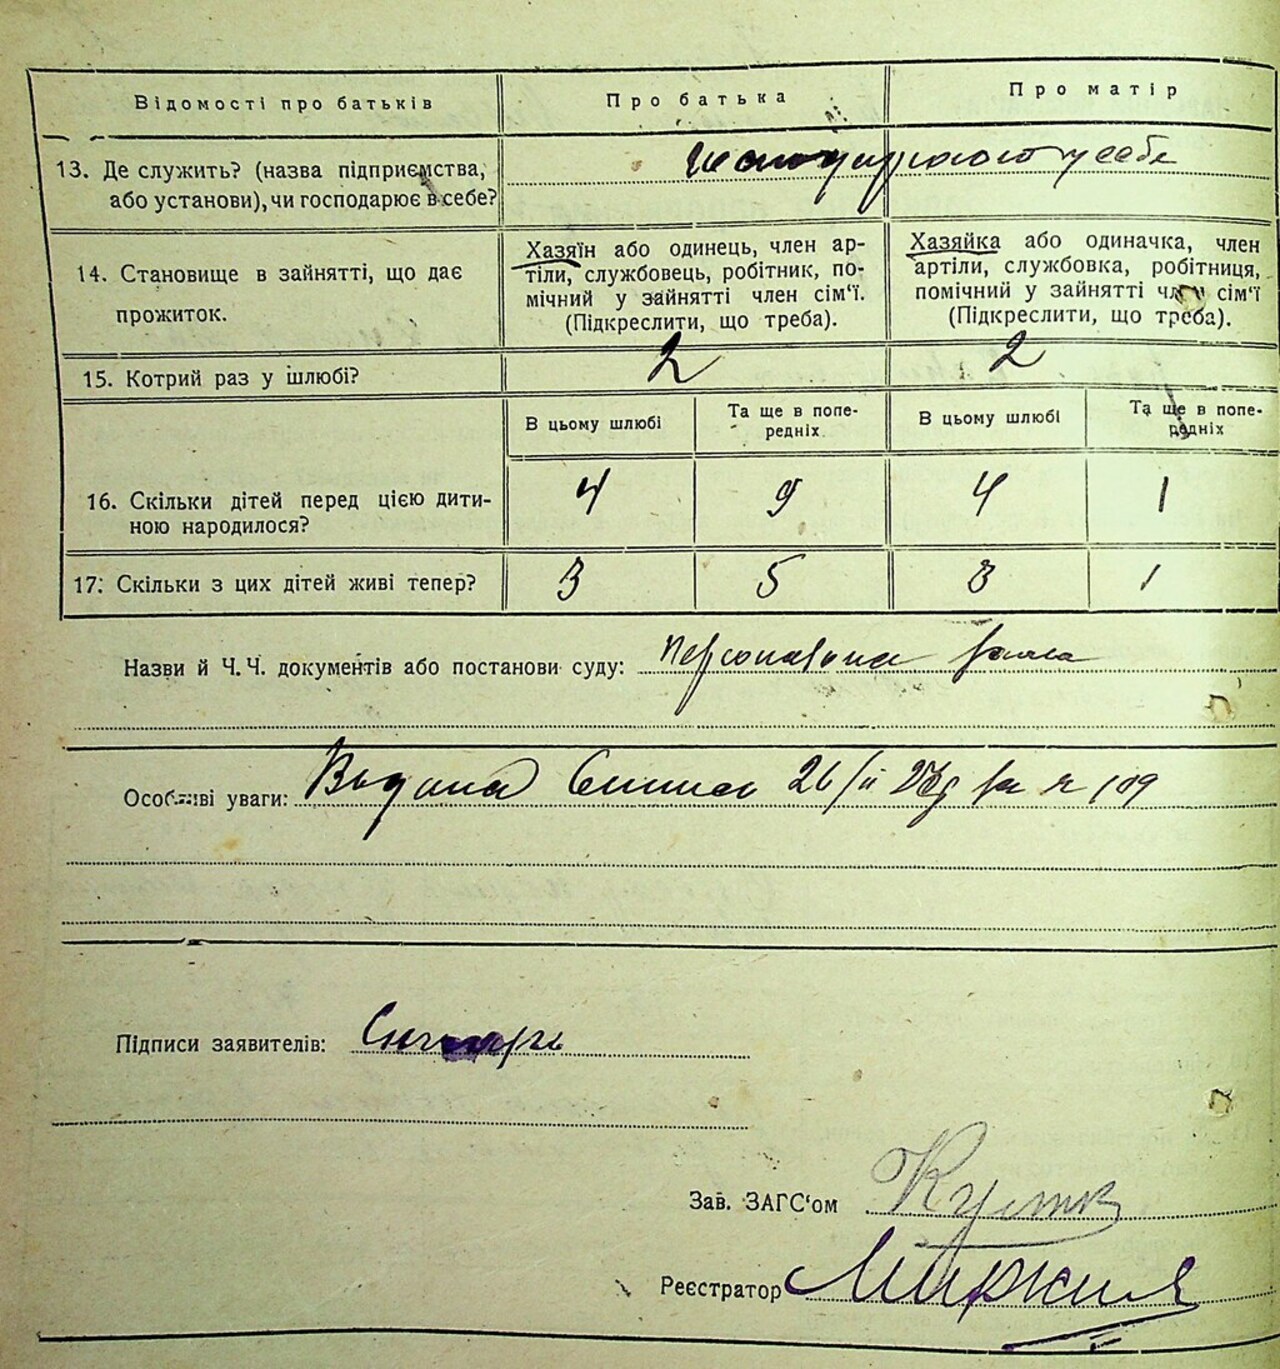 Відомості про батьків
Про батька
Про матір
13. Де служить? (назва підприємства,
або установи), чи господарює в себе?
господарюют у себе
14. Становище в зайнятті, що дає
прожиток.
Хазяїн або одинець, член ар-
тіли, службовець, робітник, по-
мічний у зайнятті член сім‘ї.
(Підкреслити, що треба).
Хазяйка або одиначка, член
артіли, службовка, робітниця,
помічний у зайнятті член сім‘ї
(Підкреслити, що треба).
15. Котрий раз у шлюбі?
2
2
В цьому шлюбі
Та ще в попе-
редніх
В цьому шлюбі
Та ще в попе-
редніх
16. Скільки дітей перед цією дити-
ною народилося?
4
9
4
1
17. Скільки з цих дітей живі тепер?
3
5
3
1
Назви й Ч.Ч. документів або постанови суду: Персональна
Особливі уваги: Видана 26/II за № 109
Підписи заявителів:
Зав. ЗАГС‘ом
Реєстратор